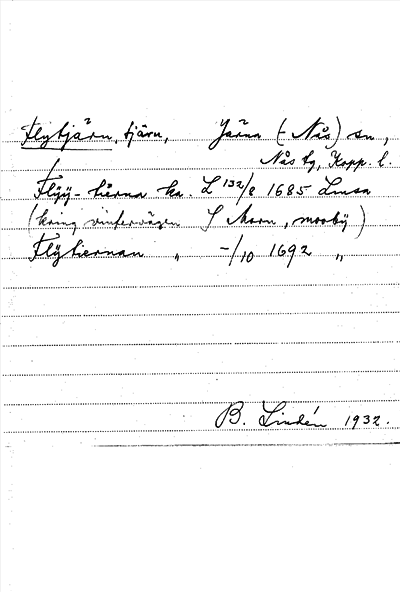 Flytjärn, tjärn, Järna (-Nås) sn,
Nås tg, Kopp. l.
Flÿÿ-tiärna ka. L 132/8 1685 Lmsa
(kring vintervägen
Flÿtiernan " -/10 1692 "
B. Lindén 1932.